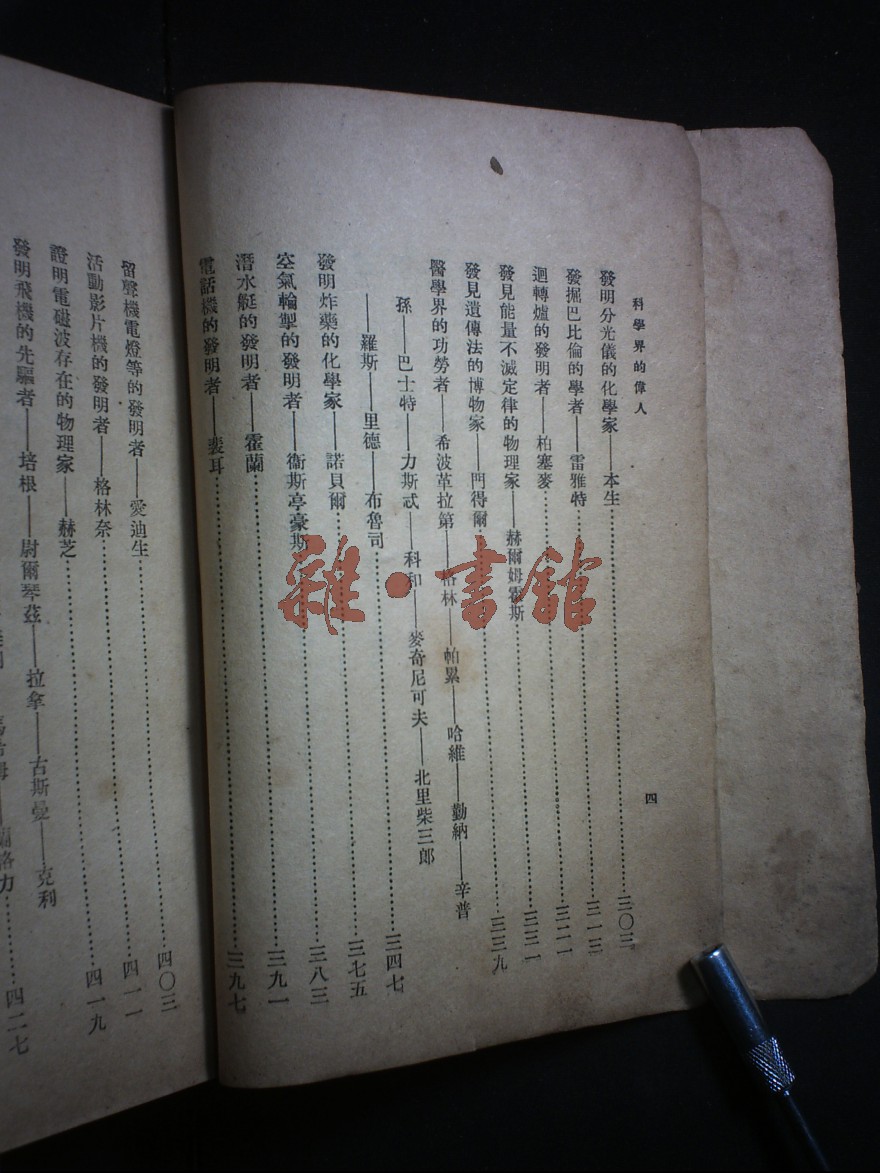 科學界的偉人
四
發明分光儀的化學家——本生……三〇三
發掘巴比倫的學者——雷雅特……三一三
迴轉爐的發明者——柏塞麥……三二一
發見能量不滅定律的物理家——赫爾姆霍斯……三三一
發見遺傳法的博物家——門得爾……三三九
醫學界的功勞者——希波革拉第——格林——帕累——哈維——勤納——辛普
孫——巴士特——力斯忒——科和——麥奇尼可夫——北里柴三郎
——羅斯——里德——布魯司……三四七
發明炸藥的化學家——諾貝爾……三七五
空氣輪掣的發明者——衛斯亭豪斯……三八三
潛水艇的發明者——霍蘭……三九一
電話機的發明者——裴耳……三九七
留聲機電燈等的發明者——愛迪生……四〇三
活動影片機的發明者——格林奈……四一一
證明電磁波存在的物理家——赫芝……四一九
發明飛機的先驅者——培根——尉爾琴茲——拉拿——古斯曼——克利
蘭格力……四二七
雜·書館